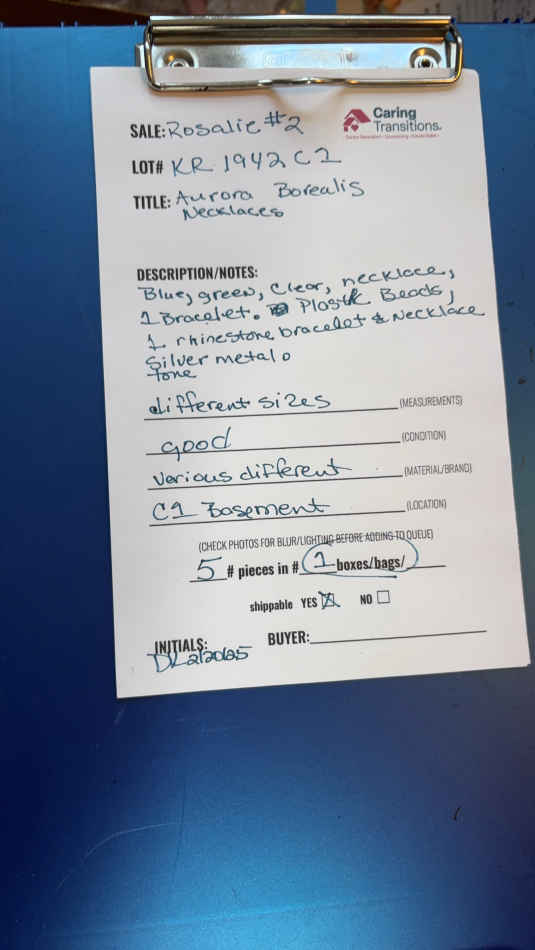 Caring
Transitions.
SALE: Rosalie #2
LOT# KR 1942 C1
TITLE: Aurora Borealis
Necklaces
DESCRIPTION/NOTES:
Blue, green, Clear, necklace,
1 Bracelet. Plastik Beads,
1 rhinestone bracelet & Necklace
Silver metal.
tone
different sizes (MEASUREMENTS)
good (CONDITION)
various different (MATERIAL/BRAND)
C1 Basement (LOCATION)
(CHECK PHOTOS FOR BLUR/LIGHTING BEFORE ADDING TO QUEUE)
5 # pieces in # 1 boxes/bags/
shippable YES NO
INITIALS: BUYER:
DL 2/20/25